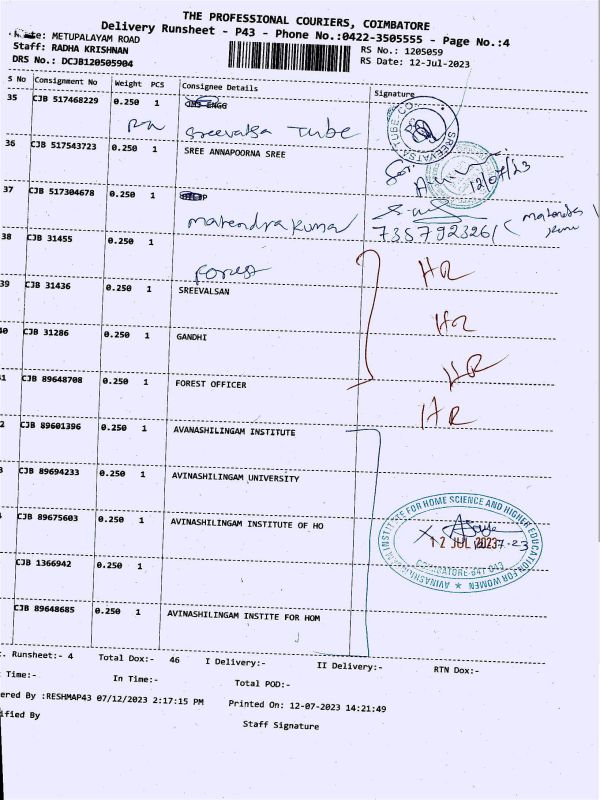 THE PROFESSIONAL COURIERS, COIMBATORE
Delivery Runsheet - P43 - Phone No.:0422-3505555 - Page No.:4
METUPALAYAM ROAD
Staff: RADHA KRISHNAN
RS No.: 1205059
DRS No.: DCJB120505904
RS Date: 12-Jul-2023
S No Consignment No Weight PCS Consignee Details Signature
35 CJB 517468229 0.250 1 ENGG
Sreevatsa Tube
SREEVATSA TUBE CO.
36 CJB 517543723 0.250 1 SREE ANNAPOORNA SREE
12/07/23
37 CJB 517304678 0.250 1
mahendra kumar
7357923261
38 CJB 31455 0.250 1
Forest
HR
39 CJB 31436 0.250 1 SREEVALSAN
HR
40 CJB 31286 0.250 1 GANDHI
HR
41 CJB 89648708 0.250 1 FOREST OFFICER
HR
2 CJB 89601396 0.250 1 AVANASHILINGAM INSTITUTE
3 CJB 89694233 0.250 1 AVINASHILINGAM UNIVERSITY
CJB 89675603 0.250 1 AVINASHILINGAM INSTITUTE OF HO
AVINASHILINGAM INSTITUTE FOR HOME SCIENCE AND HIGHER EDUCATION FOR WOMEN
12 JUL 2023
COIMBATORE-641 043
CJB 1366942 0.250 1
CJB 89648685 0.250 1 AVINASHILINGAM INSTITE FOR HOM
. Runsheet:- 4 Total Dox:- 46 I Delivery:- II Delivery:- RTN Dox:-
Time:- In Time:- Total POD:-
ered By :RESHMAP43 07/12/2023 2:17:15 PM Printed On: 12-07-2023 14:21:49
ified By Staff Signature